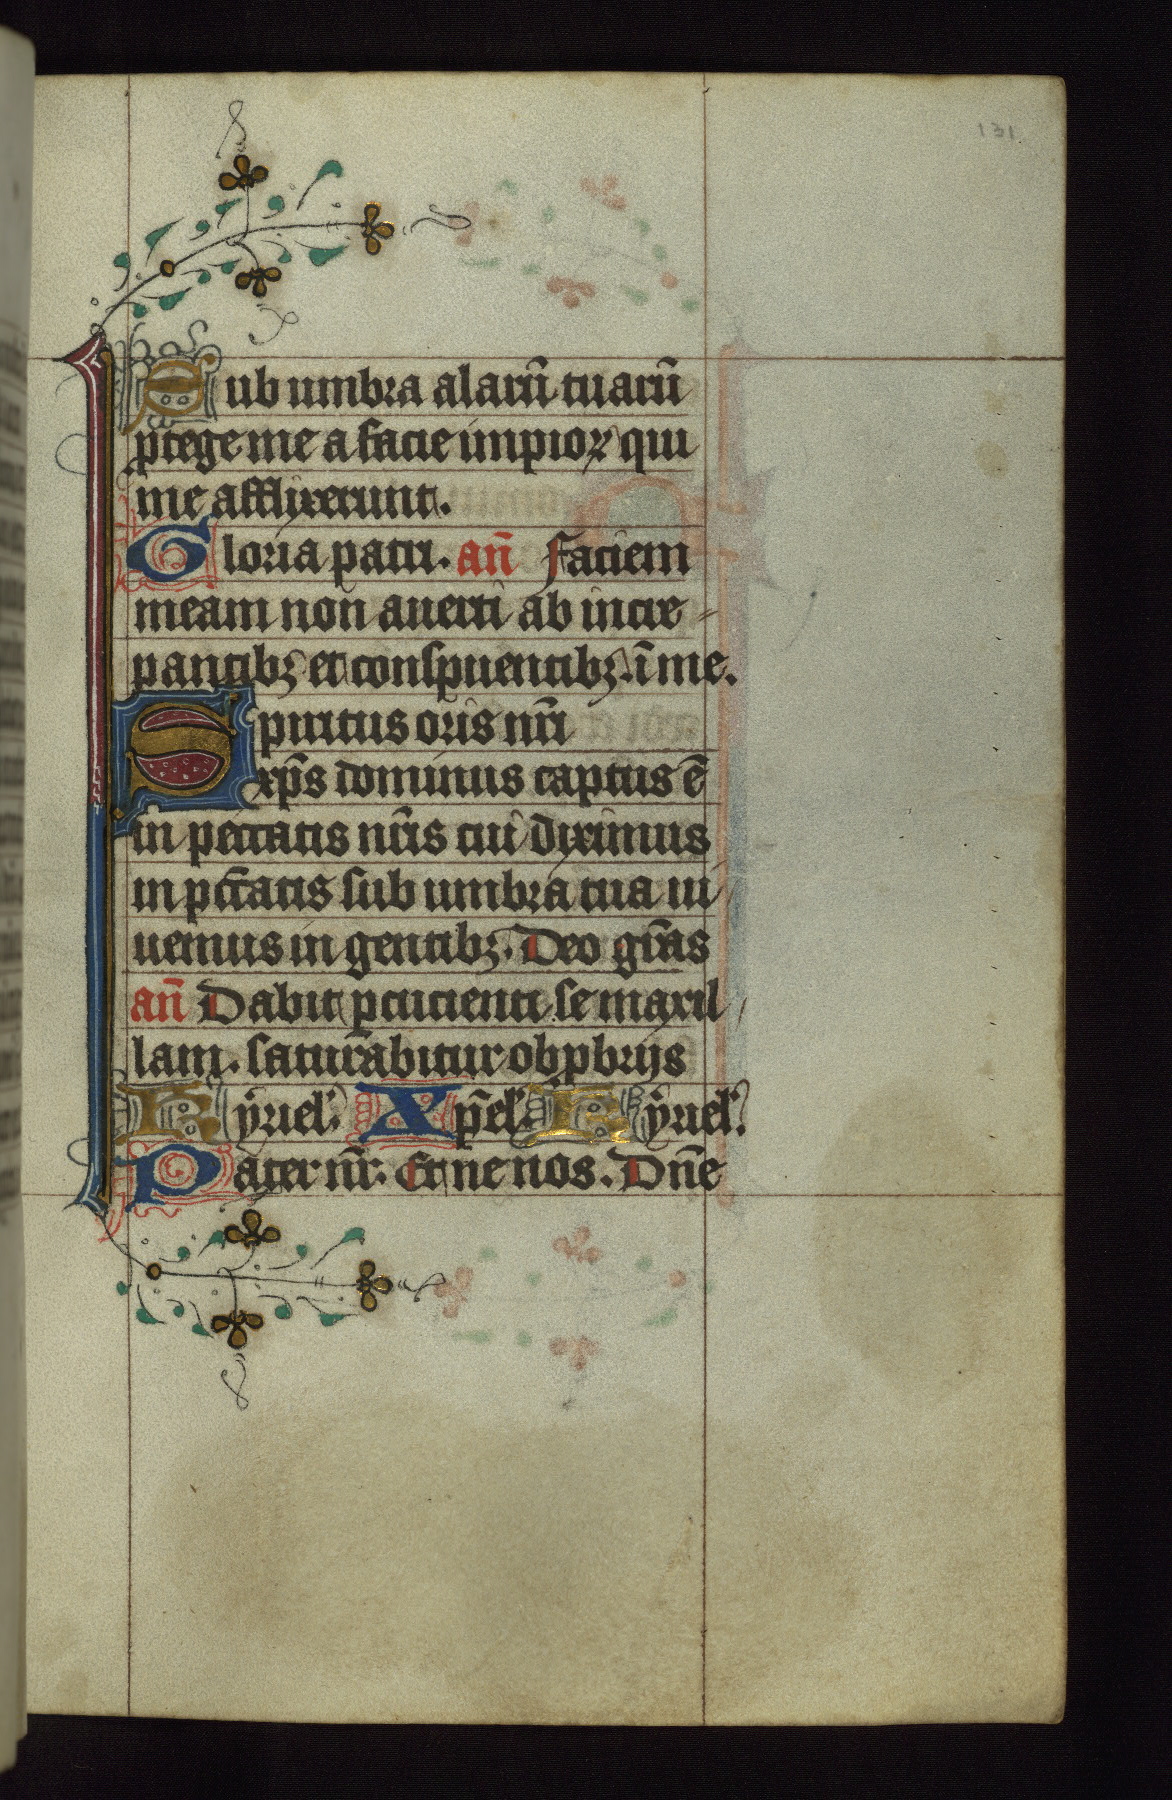 131
Sub umbra alarū tuarū
ꝓtege me a facie impioꝝ qui
me afflixerunt.
Gloria patri. añ Faciem
meam non auerti ab incre⸗
pantibꝫ et conspuentibꝫ ī me.
Spiritus oris nr̄i
xp̄s dominus captus ē
in peccatis nr̄is cui diximus
in pctātis sub umbra tua ui⸗
uemus in gentibꝫ. Deo gr̄as
añ Dabit ꝑcucienti se maxil⸗
lam. saturabitur obꝓbrijs
Kyriel'. Xp̄el'. Kyriel'.
Pater nr̄. Et ne nos. Dn̄e